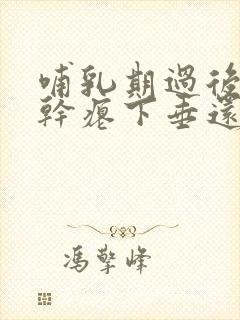 哺乳期過後
幹癟下垂還
馮擎峰